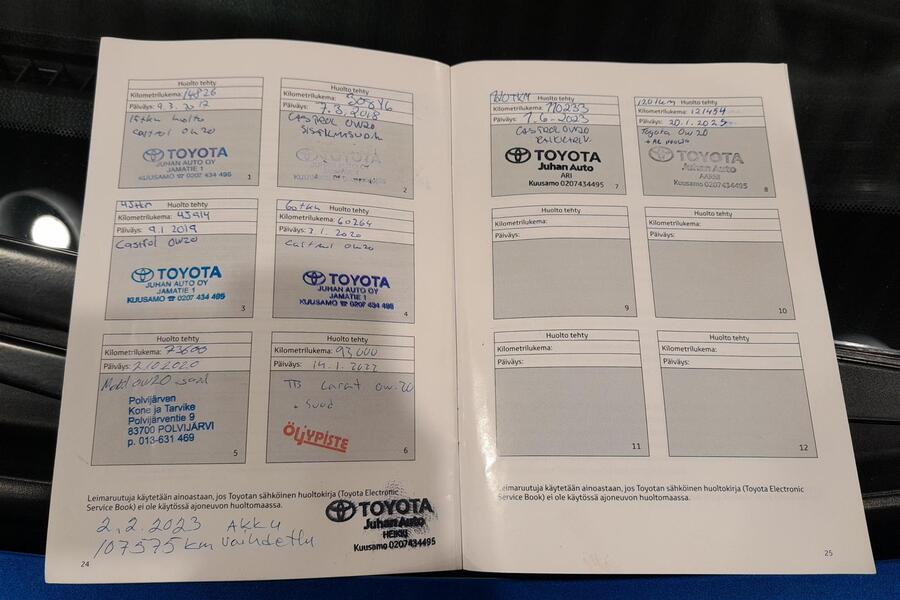 Huolto tehty
Kilometrilukema: 14826
Päiväys: 9.3. 2017
15tkm huolto
castrol 0W20
TOYOTA
JUHAN AUTO OY
JAMATIE 1
KUUSAMO ☎ 0207 434 495
1
Huolto tehty
Kilometrilukema:
Päiväys: 7.3.2018
CASTROL 0W20
2
45tkm Huolto tehty
Kilometrilukema: 43914
Päiväys: 9.1 2019
Castrol 0W20
TOYOTA
JUHAN AUTO OY
JAMATIE 1
KUUSAMO ☎ 0207 434 495
3
60tkm Huolto tehty
Kilometrilukema: 60264
Päiväys: 3.1.2020
Castrol 0W20
TOYOTA
JUHAN AUTO OY
JAMATIE 1
KUUSAMO ☎ 0207 434 495
4
Huolto tehty
Kilometrilukema: 73600
Päiväys: 2.10.2020
0W20
Polvijärven
Kone ja Tarvike
Polvijärventie 9
83700 POLVIJÄRVI
p. 013-631 469
5
Huolto tehty
Kilometrilukema: 93,000
Päiväys: 14.1.2022
carat 0W-20
+ Suod
ÖLJYPISTE
6
Leimaruutuja käytetään ainoastaan, jos Toyotan sähköinen huoltokirja (Toyota Electronic
Service Book) ei ole käytössä ajoneuvon huoltomaassa.
2.2.2023 AKKU
107575km vaihdettu
TOYOTA
Juhan Auto
HEIKKI
Kuusamo 0207434495
24
Huolto tehty
Kilometrilukema: 110233
Päiväys: 1.6.2023
CASTROL 0W20
TOYOTA
Juhan Auto
ARI
Kuusamo 0207434495
7
Huolto tehty
Kilometrilukema: 121454
Päiväys: 20.1.2025
Toyota 0W20
TOYOTA
Juhan Auto
Kuusamo 0207434495
8
Huolto tehty
Kilometrilukema:
Päiväys:
9
Huolto tehty
Kilometrilukema:
Päiväys:
10
Huolto tehty
Kilometrilukema:
Päiväys:
11
Huolto tehty
Kilometrilukema:
Päiväys:
12
Leimaruutuja käytetään ainoastaan, jos Toyotan sähköinen huoltokirja (Toyota Electronic
Service Book) ei ole käytössä ajoneuvon huoltomaassa.
25